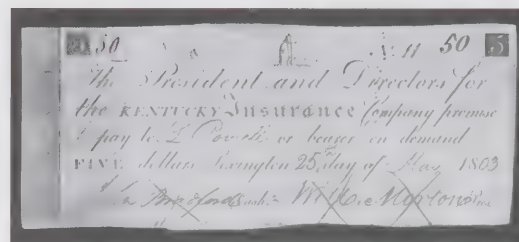 50 N. 11 50 5
The President and Directors for
the KENTUCKY Insurance Company promise
to pay to L Powell or bearer on demand
FIVE dollars Lexington 25 day of May 1803
Bradford Cash.r Will Morton Pres